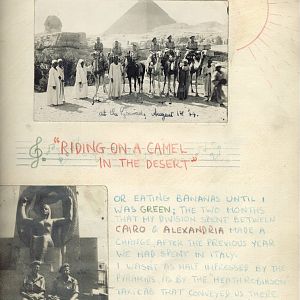 at the Pyramids, August 1944.
"RIDING ON A CAMEL
IN THE DESERT"
OR EATING BANANAS UNTIL I
WAS GREEN; THE TWO MONTHS
THAT MY DIVISION SPENT BETWEEN
CAIRO & ALEXANDRIA MADE A
CHANGE AFTER THE PREVIOUS YEAR
WE HAD SPENT IN ITALY.
I WASN'T AS HALF IMPRESSED BY THE
PYRAMIDS AS BY THE HEATH-ROBINSON
TAXI-CAB THAT CONVEYED US THERE